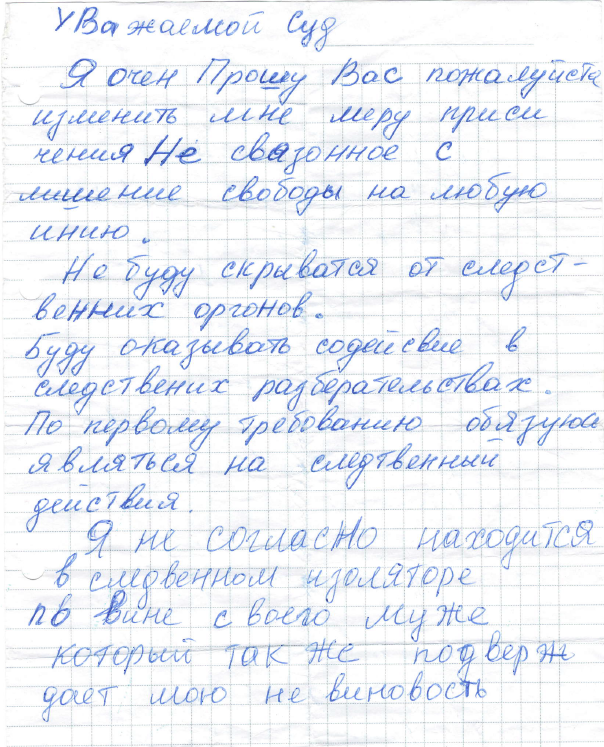 УВажаемой Суд
Я очен Прошу Вас пожалуйста
изменить мне меру приси
чения Не свазонное с
лишение свободы на любую
инию.
Не буду скрыватся от следст-
венних оргонов.
Буду оказывать содейсвие в
следствених разберательствах.
По первому требованию обязуюс
являться на следтвенный
действия.
Я не согласно находится
в следвенном изоляторе
по вине своего муже
который так же подверж
дает мою не виновость